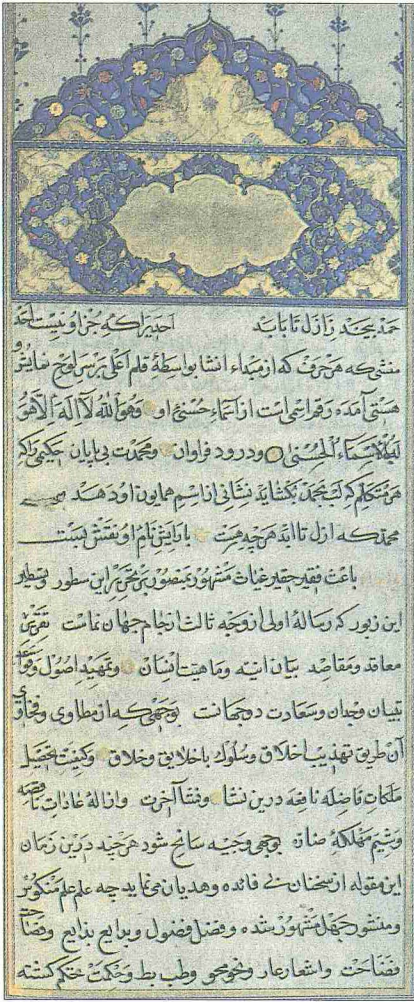 حمد بیحد ز ازل تا بابد احدیرا که جز او نیست احد
منشئی که هر حرف که از مبداء انشا بواسطهٔ قلم اعلی بر سر لوح نمایش و
هستی آمده رقم اسمی است از اسماء حسنی او وهو الله لا اله الا هو
له الاسماء الحسنی و درود فراوان و محمدت بی پایان حکیمی را که
هر متکلم که لب بحمد بگشاید نشانی از اسم همایون او دهد
محمد که ازل تا ابد هرچه هست بارایش نام او نقش بست
باعث فقیر حقیر غیاث مشهور بمنصور بر تحریر این سطور و تسطیر
این زبور که رسالهٔ اولی از وجهه ثالث از جام جهان نماست تقریر
معاقد و مقاصد بیان انیه و ماهیت انسان و تمهید اصول و قواعد
تبیان وجدان و سعادت دو جهانست بوجهی که از مطاوی و فحاوی
آن طریق تهذیب اخلاق و سلوک با خلایق و خلاق و کیفیت تحصیل
ملکات فاضله نافعه درین نشا و نشا آخرت و ازالهٔ عادات ناقصه
و شیم مهلکهٔ ضاره بوجهی وجیه سانح شود هرچند درین زمان
این مقوله از سخنان بی فائده و هدیان می نماید چه علم علم منکوس
و منشور جهل مشهور شده و فضل فضول و بدایع بذایع و فصاحت
فضاحت و اشعار عار و نحو محو و طب بط و حکمت حکم گشته